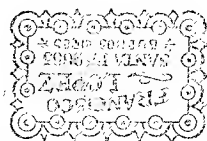 FRANCISCO
LOPEZ
SANTA FE 2065
BUENOS AIRES